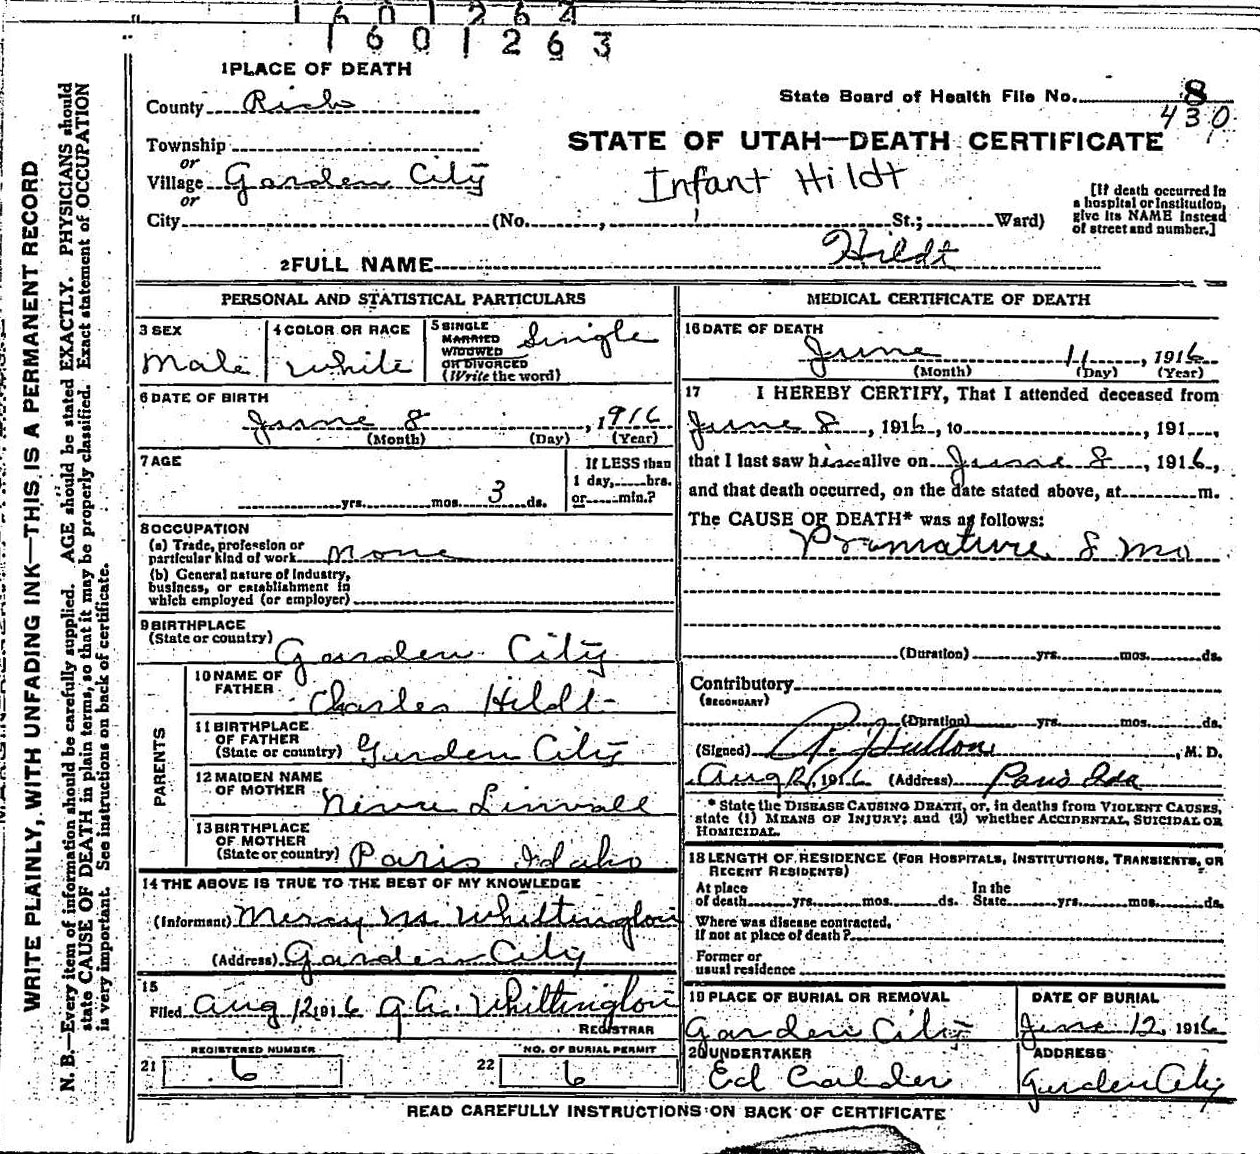 1601264
1601263
1 PLACE OF DEATH
County Rich
State Board of Health File No. 8
430
Township
or
Village Garden City
or
City (No. , St.; Ward)
STATE OF UTAH—DEATH CERTIFICATE
Infant Hildt
[If death occurred in
a hospital or institution,
give its NAME instead
of street and number.]
2 FULL NAME Hildt
PERSONAL AND STATISTICAL PARTICULARS
3 SEX
Male
4 COLOR OR RACE
White
5 SINGLE
MARRIED
WIDOWED
OR DIVORCED
(Write the word)
Single
6 DATE OF BIRTH
June 8 , 1916
(Month) (Day) (Year)
7 AGE
yrs. mos. 3 ds.
If LESS than
1 day, hrs.
or min.?
8 OCCUPATION
(a) Trade, profession or
particular kind of work None
(b) General nature of Industry,
business, or establishment in
which employed (or employer)
9 BIRTHPLACE
(State or country) Garden City
PARENTS
10 NAME OF
FATHER
Charles Hildt
11 BIRTHPLACE
OF FATHER
(State or country) Garden City
12 MAIDEN NAME
OF MOTHER
Linvall
13 BIRTHPLACE
OF MOTHER
(State or country) Paris Idaho
14 THE ABOVE IS TRUE TO THE BEST OF MY KNOWLEDGE
(Informant) Mercy M. Whittington
(Address) Garden City
15
Filed Aug 12 1916 G.A. Whittington
REGISTRAR
REGISTERED NUMBER
21 6
NO. OF BURIAL PERMIT
22 6
MEDICAL CERTIFICATE OF DEATH
16 DATE OF DEATH
June 11 , 1916
(Month) (Day) (Year)
17 I HEREBY CERTIFY, That I attended deceased from
June 8 , 1916, to , 191 ,
that I last saw him alive on June 8 , 1916,
and that death occurred, on the date stated above, at m.
The CAUSE OF DEATH* was as follows:
Premature 8 mo
(Duration) yrs. mos. ds.
Contributory
(SECONDARY)
(Duration) yrs. mos. ds.
(Signed) Hutton , M. D.
Aug 12, 1916 (Address) Paris Ida
* State the DISEASE CAUSING DEATH, or, in deaths from VIOLENT CAUSES,
state (1) MEANS OF INJURY; and (2) whether ACCIDENTAL, SUICIDAL OR
HOMICIDAL.
18 LENGTH OF RESIDENCE (FOR HOSPITALS, INSTITUTIONS, TRANSIENTS, OR
RECENT RESIDENTS)
At place
of death yrs. mos. ds.
In the
State yrs. mos. ds.
Where was disease contracted,
If not at place of death?
Former or
usual residence
19 PLACE OF BURIAL OR REMOVAL
Garden City
DATE OF BURIAL
June 12, 1916
20 UNDERTAKER
Ed Calder
ADDRESS
Garden City
READ CAREFULLY INSTRUCTIONS ON BACK OF CERTIFICATE
WRITE PLAINLY, WITH UNFADING INK—THIS IS A PERMANENT RECORD
N. B.—Every item of information should be carefully supplied. AGE should be stated EXACTLY. PHYSICIANS should
state CAUSE OF DEATH in plain terms, so that it may be properly classified. Exact statement of OCCUPATION
is very important. See instructions on back of certificate.